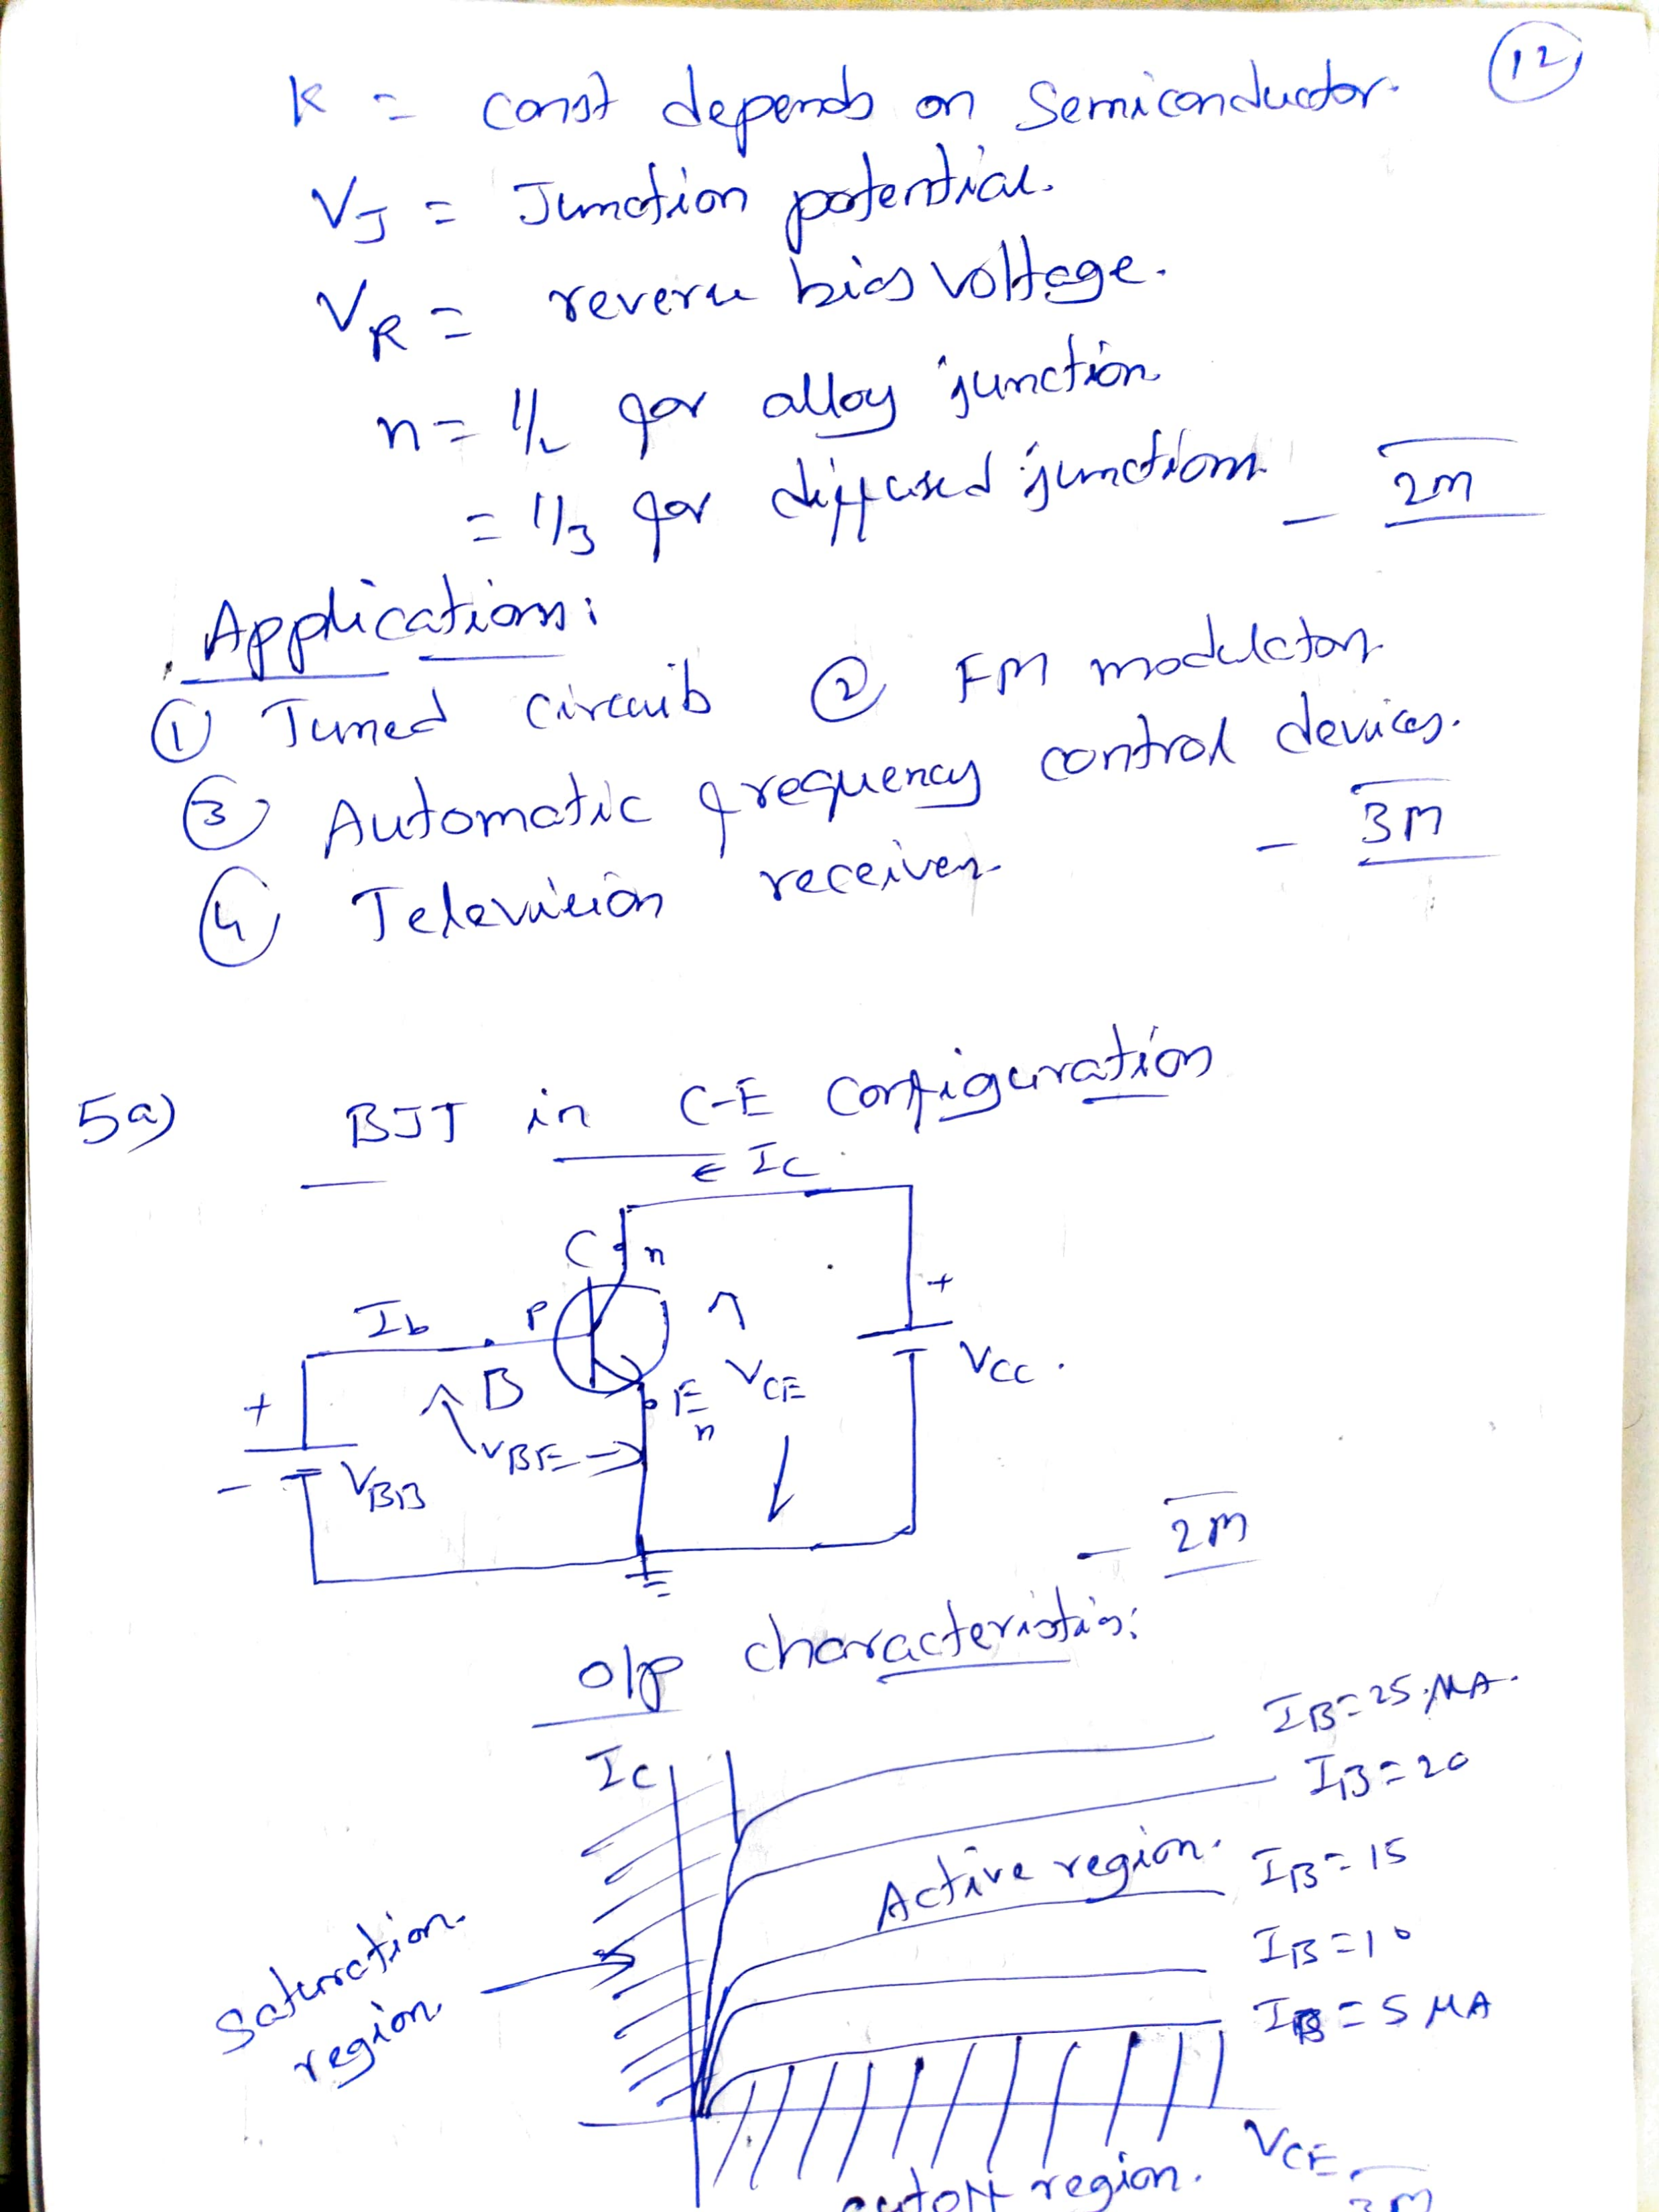 12
K = const depends on Semiconductor.
VJ = Junction potential.
VR = reverse bias voltage.
n = 1/2 for alloy junction
= 1/3 for diffused junctions - 2M
Applications:
① Tuned circuits ② FM modulators
③ Automatic frequency control devices.
④ Television receivers - 3M
5a) BJT in C-E Configuration
← IC
C n
+
Ib P
B E VCE VCC.
+ n
VBE →
- VBB
- 2M
o/p characteristics:
IB = 25 μA.
IC
IB = 20
Active region. IB = 15
Saturation region.
IB = 10
IB = 5 μA
VCE
cutoff region.
3M